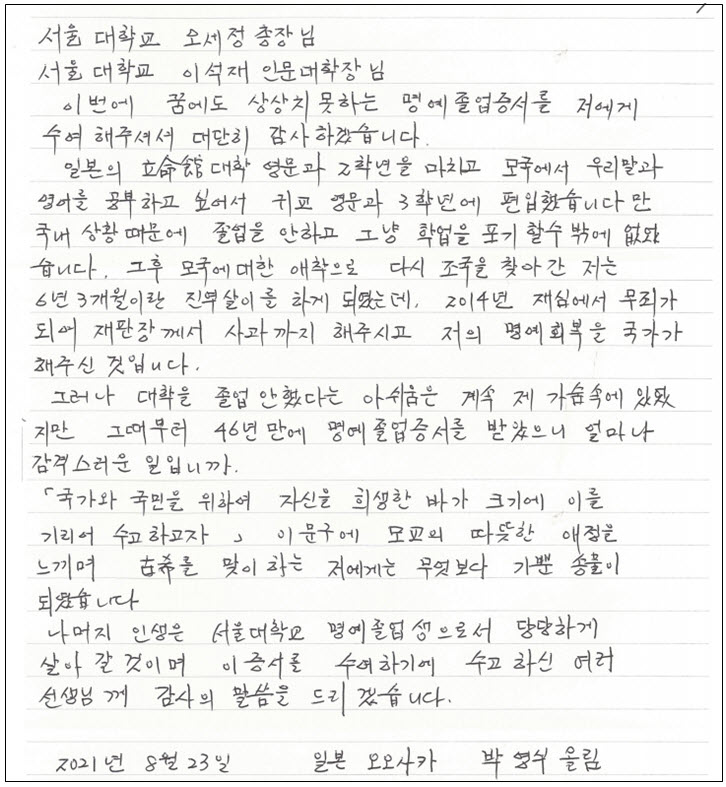 서울 대학교 오세정 총장님
서울 대학교 이석재 인문대학장님
이번에 꿈에도 상상치 못하는 명예졸업증서를 저에게
수여 해주셔서 대단히 감사하겠습니다.
일본의 立命館대학 영문과 2학년을 마치고 모국에서 우리말과
영어를 공부하고 싶어서 귀교 영문과 3학년에 편입했습니다만
국내 상황 때문에 졸업을 안하고 그냥 학업을 포기 할수 밖에 없었
습니다. 그후 모국에대한 애착으로 다시 조국을 찾아간 저는
6년 3개월이란 징역살이를 하게 되었는데, 2014년 재심에서 무죄가
되어 재판장께서 사과까지 해주시고 저의 명예회복을 국가가
해주신 것입니다.
그러나 대학을 졸업 안했다는 아쉬움은 계속 제 가슴속에 있었
지만 그때부터 46년만에 명예졸업증서를 받았으니 얼마나
감격스러운 일입니까.
「국가와 국민을 위하여 자신을 희생한 바가 크기에 이를
기리어 수고하고자」 이 문구에 모교의 따뜻한 애정을
느끼며 古希를 맞이 하는 저에게는 무엇보다 기쁜 송물이
되었습니다
나머지 인생은 서울대학교 명예졸업생으로서 당당하게
살아 갈 것이며 이 증서를 수여하기에 수고 하신 여러
선생님께 감사의 말씀을 드리겠습니다.
2021년 8월 23일 일본 오오사카 박영식 올림